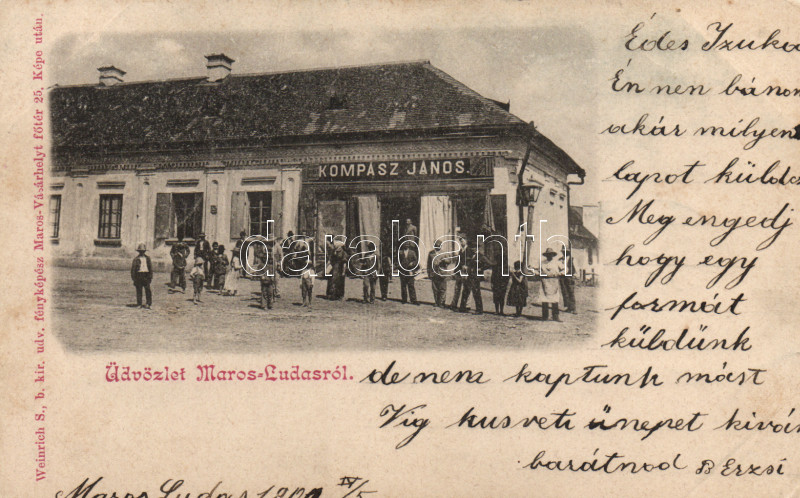 Weinrich S., b. kir. udv. fényképész Maros-Vásárhelyt főtér 25. Képe után.
KOMPÁSZ JÁNOS.
darabanth
Üdvözlet Maros-Ludasról.
Édes
Én nen bánom
akár milyen
lapot küldesz
Meg engedj
hogy egy
formát
küldünk
de nem kaptunk mást
Vig kusveti ünepet kiván
barátnod B Erzsi
Maros Ludas 190 IV/5